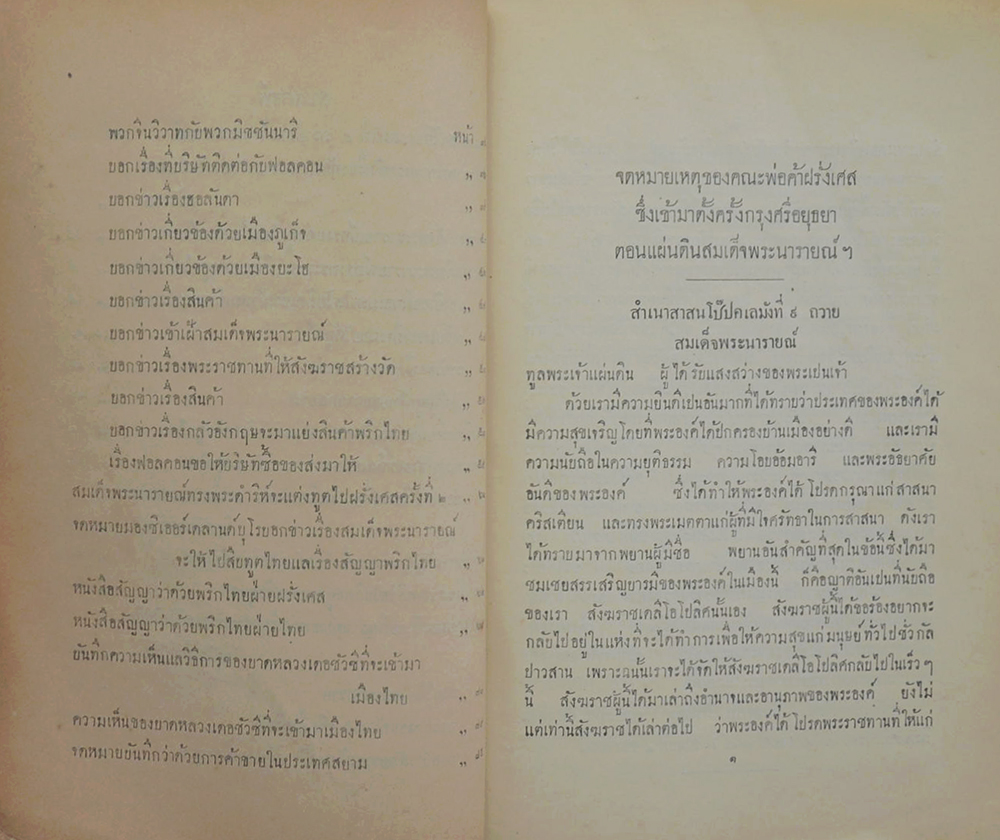 พวกจีนวิวาทกับพวกมิชชันนารี หน้า
บอกเรื่องที่บริษัทติดต่อกับฟอลคอน ,,
บอกข่าวเรื่องฮอลันดา ,,
บอกข่าวเกี่ยวข้องด้วยเมืองภูเก็จ ,,
บอกข่าวเกี่ยวข้องด้วยเมืองยะโฮ ,,
บอกข่าวเรื่องสินค้า ,,
บอกข่าวเข้าเฝ้าสมเด็จพระนารายณ์ ,,
บอกข่าวเรื่องพระราชทานที่ให้สังฆราชสร้างวัด ,,
บอกข่าวเรื่องสินค้า ,,
บอกข่าวเรื่องกลัวอังกฤษจะมาแย่งสินค้าพริกไทย ,,
เรื่องฟอลคอนขอให้บริษัทซื้อของส่งมาให้ ,,
สมเด็จพระนารายณ์ทรงพระดำริห์จะแต่งทูตไปฝรั่งเศสครั้งที่ ๒ ,,
จดหมายมองซิเออร์เดลานด์บุโรบอกข่าวเรื่องสมเด็จพระนารายณ์
จะให้ไปสืบทูตไทยแลเรื่องสัญญาพริกไทย ,,
หนังสือสัญญาว่าด้วยพริกไทยฝ่ายฝรั่งเศส ,,
หนังสือสัญญาว่าด้วยพริกไทยฝ่ายไทย ,,
บันทึกความเห็นแลวิธีการของบาดหลวงเดอชัวซีที่จะเข้ามา
เมืองไทย ,,
ความเห็นของบาดหลวงเดอชัวซีที่จะเข้ามาเมืองไทย ,,
จดหมายบันทึกว่าด้วยการค้าขายในประเทศสยาม ,,
จดหมายเหตุของคณะพ่อค้าฝรั่งเศส
ซึ่งเข้ามาตั้งครั้งกรุงศรีอยุธยา
ตอนแผ่นดินสมเด็จพระนารายณ์ ฯ
สำเนาสาสนโป๊ปคเลมังที่ ๙ ถวาย
สมเด็จพระนารายณ์
ทูลพระเจ้าแผ่นดิน ผู้ได้รับแสงสว่างของพระเปนเจ้า
ด้วยเรามีความยินดีเปนอันมากที่ได้ทราบว่าประเทศของพระองค์ได้
มีความสุขเจริญโดยที่พระองค์ได้ปกครองบ้านเมืองอย่างดี และเรามี
ความนับถือในความยุติธรรม ความโอบอ้อมอารี และพระอัธยาศัย
อันดีของพระองค์ ซึ่งได้ทำให้พระองค์ได้โปรดกรุณาแก่สาสนา
คริสเตียน และทรงพระเมตตาแก่ผู้ที่มีใจศรัทธาในการสาสนา ดังเรา
ได้ทราบมาจากพยานผู้มีชื่อ พยานอันสำคัญที่สุดในข้อนี้ซึ่งได้มา
ชมเชยสรรเสริญบารมีของพระองค์ในเมืองนี้ ก็คือญาติอันเปนที่นับถือ
ของเรา สังฆราชเดลิโอโปลิศนั้นเอง สังฆราชผู้นี้ได้ขอร้องอยากจะ
กลับไปอยู่ในแห่งที่จะได้ทำการเพื่อให้ความสุขแก่มนุษย์ทั่วไปชั่วกัล
ปาวสาน เพราะฉนั้นเราจะได้จัดให้สังฆราชเดลิโอโปลิศกลับไปในเร็ว ๆ
นี้ สังฆราชผู้นี้ได้มาเล่าถึงอำนาจและอานุภาพของพระองค์ ยังไม่
แต่เท่านี้สังฆราชได้เล่าต่อไป ว่าพระองค์ได้โปรดพระราชทานที่ให้แก่
๑